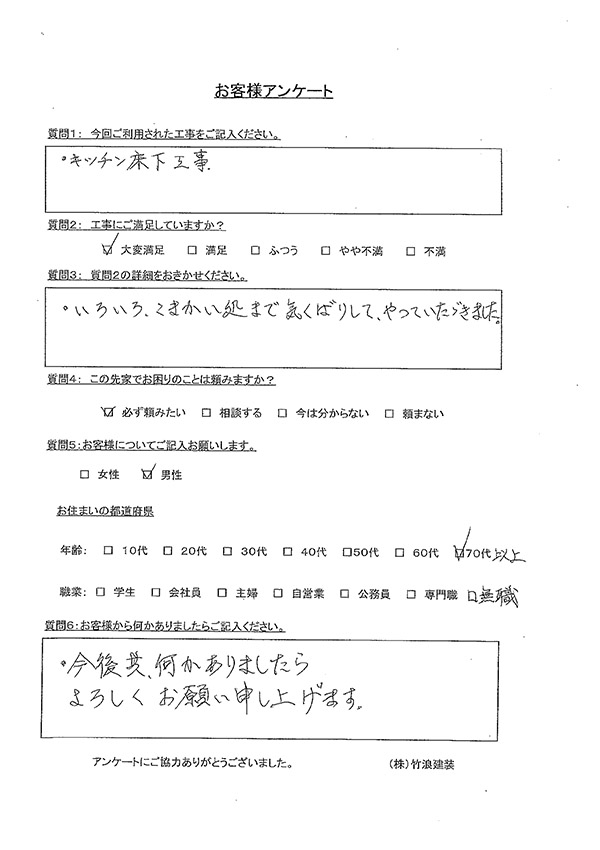 お客様アンケート
質問1： 今回ご利用された工事をご記入ください。
・キッチン床下工事
質問2： 工事にご満足していますか？
☑ 大変満足 □ 満足 □ ふつう □ やや不満 □ 不満
質問3： 質問2の詳細をおきかせください。
・いろいろ、こまかい処まで気くばりして、やっていただきました。
質問4： この先家でお困りのことは頼みますか？
☑ 必ず頼みたい □ 相談する □ 今は分からない □ 頼まない
質問5：お客様についてご記入お願いします。
□ 女性 ☑ 男性
お住まいの都道府県
年齢： □ 10代 □ 20代 □ 30代 □ 40代 □50代 □ 60代 ☑70代以上
職業： □ 学生 □ 会社員 □ 主婦 □ 自営業 □ 公務員 □ 専門職 □無職
質問6：お客様から何かありましたらご記入ください。
・今後共、何かありましたら
よろしくお願い申し上げます。
アンケートにご協力ありがとうございました。 （株）竹浪建装